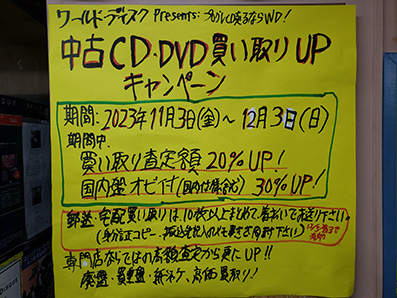 ワールド・ディスク Presents: プログレ売るならWD!
中古CD・DVD買い取りUP
キャンペーン
期間: 2023年11月3日(金)～12月3日(日)
期間中
買い取り査定額 20%UP!
国内盤オビ付(国内仕様含む) 30%UP!
郵送・宅配買い取りは10枚以上まとめて着払いでお送り下さい。
(身分証コピー、振込先記入のメモ書きを同封下さい)
専門店ならではの高額査定から更にUP!!
廃盤・貴重盤・紙ジャケ、高価買取り!